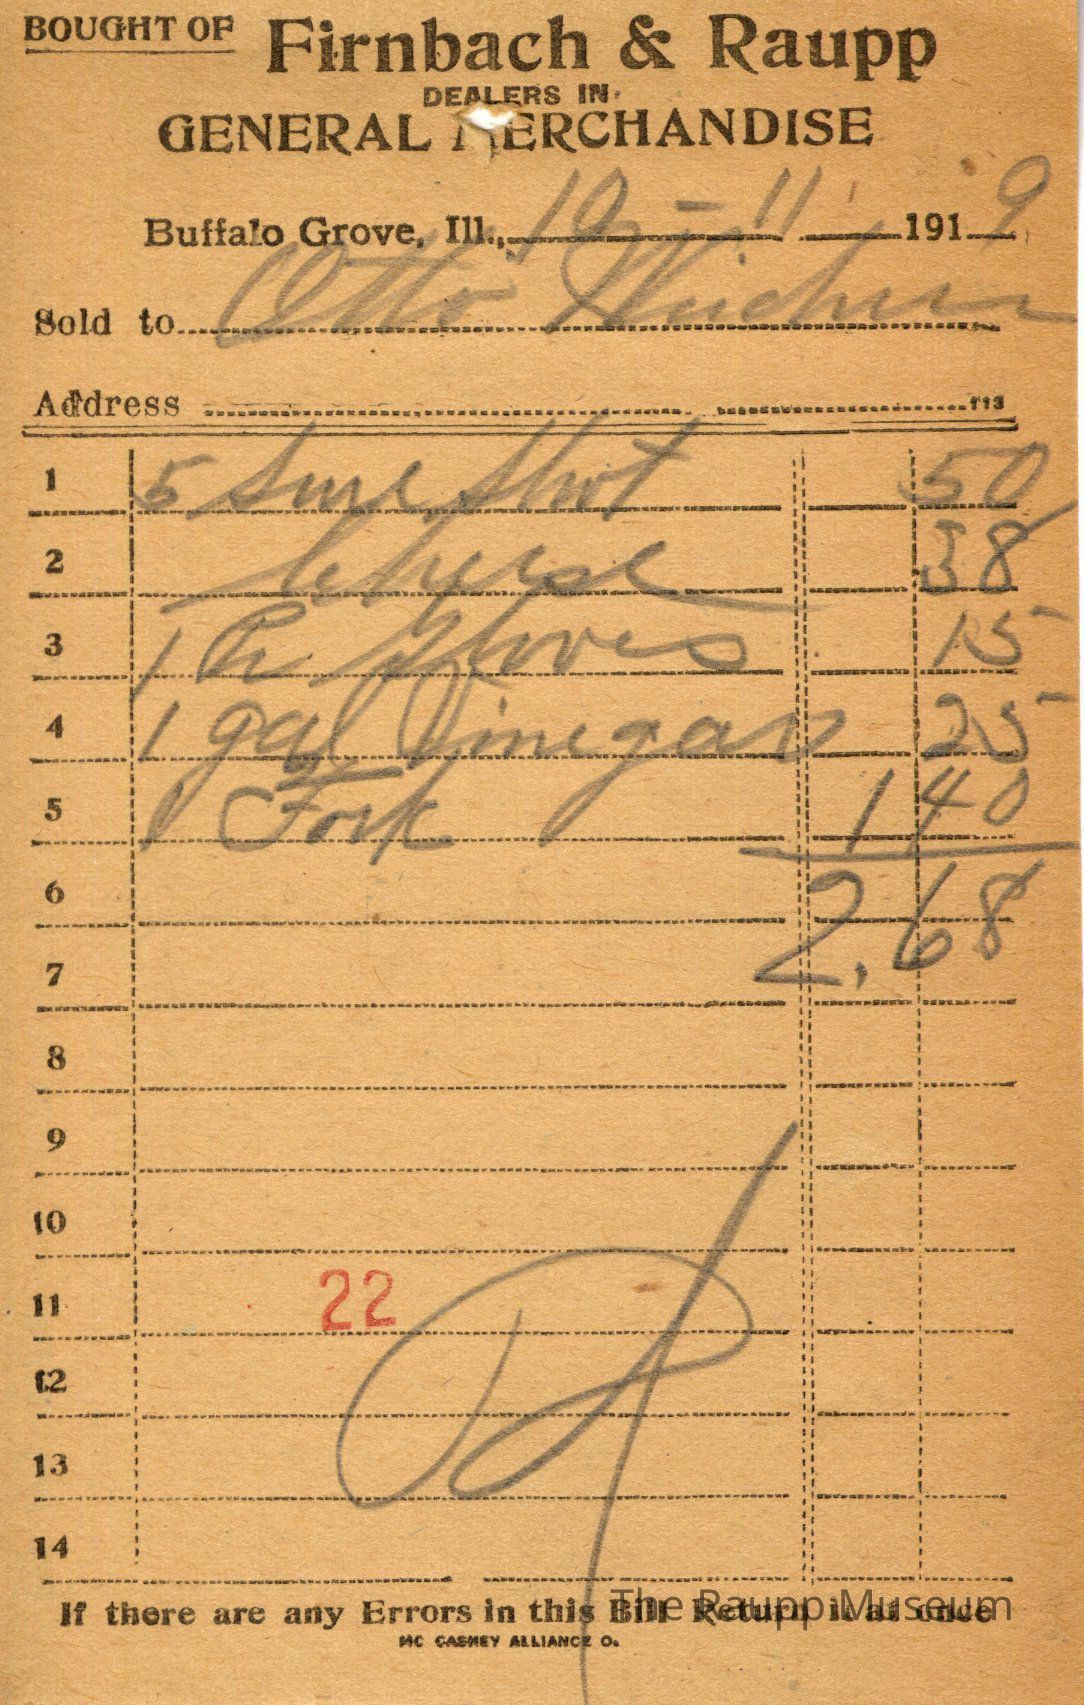 BOUGHT OF Firnbach & Raupp
DEALERS IN
GENERAL MERCHANDISE
Buffalo Grove, Ill., 10 - 11 1919
Sold to Otto
Address 113
1 5 Sure Shot 50
2 Cheese 38
3 1 Pr Gloves 15
4 1 gal Vinegar 25
5 1 Fork 1 40
6 2.68
7
8
9
10
11 22
12
13
14
If there are any Errors in this Bill Return it at once
The Raupp Museum
MC CASKEY ALLIANCE O.